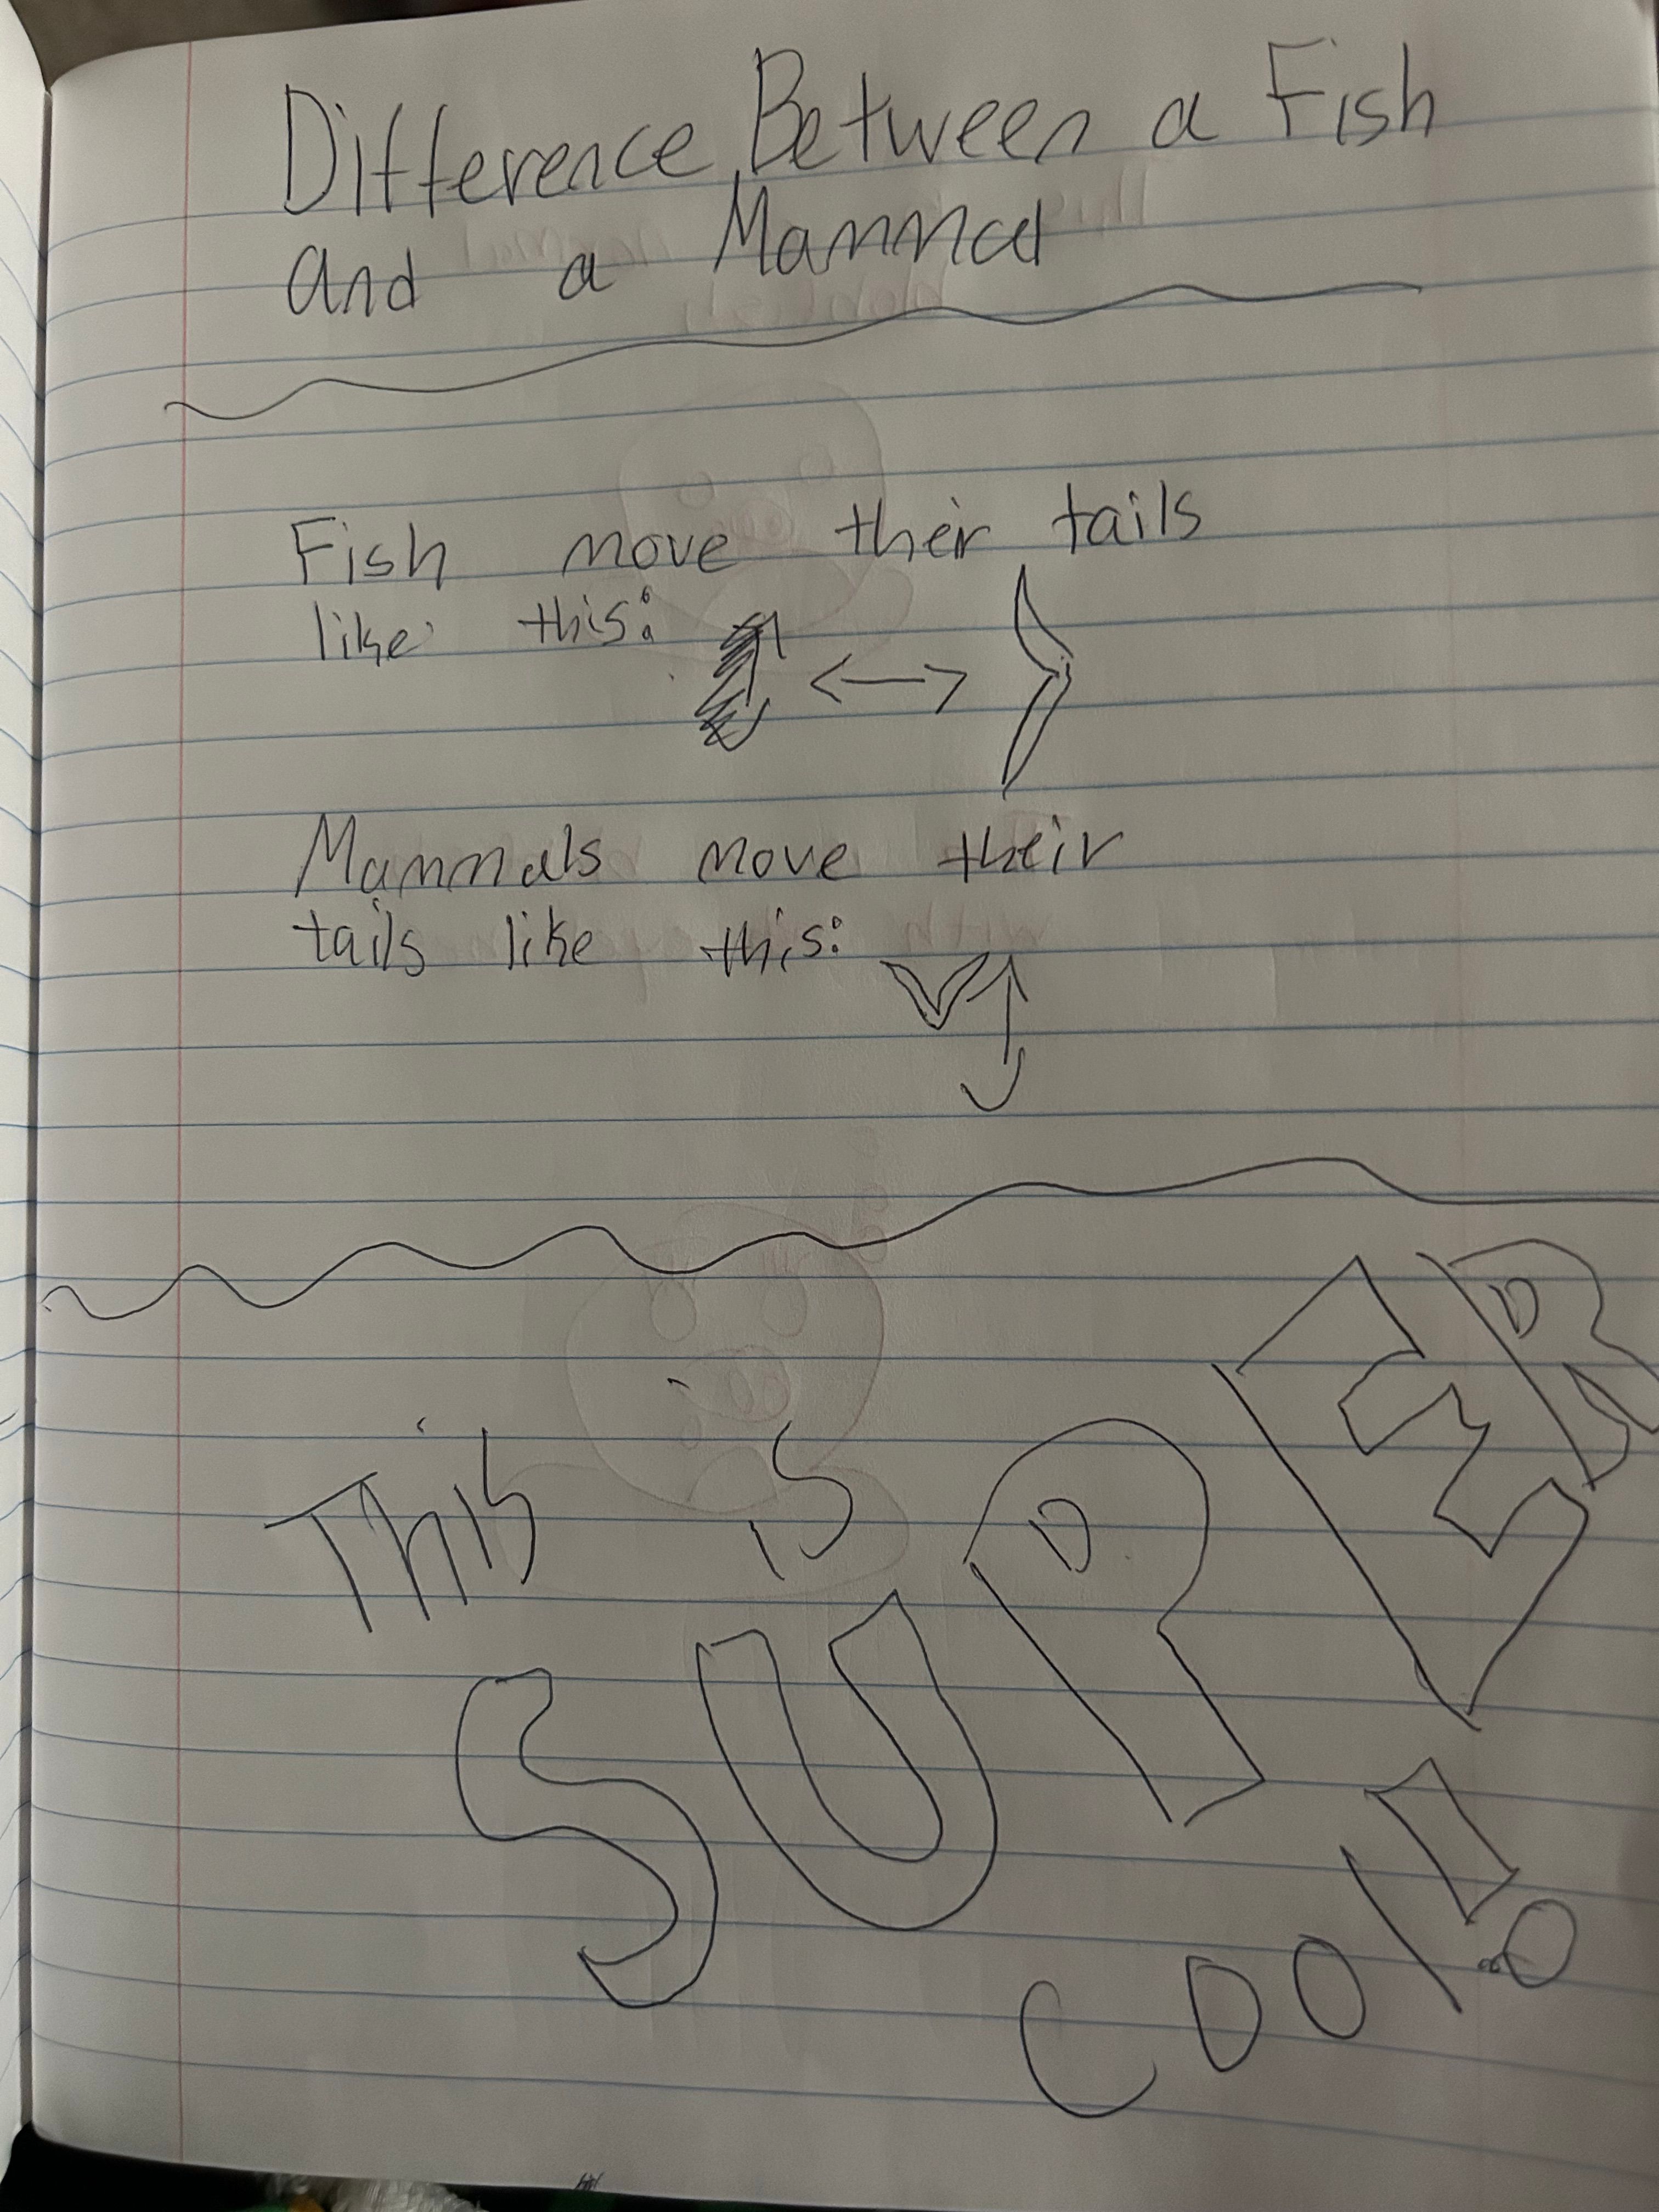 Difference Between a Fish
and a Mammal
Fish move their tails
like this:
Mammals move their
tails like this:
This is
SUPER
cool!